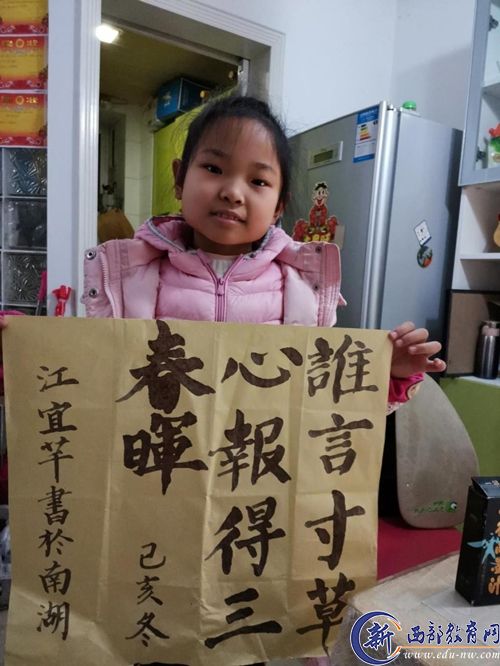 誰言寸草
心報得三
春暉
己亥冬
江宜芊書於南湖
新 西部教育网
www.edu-nw.com